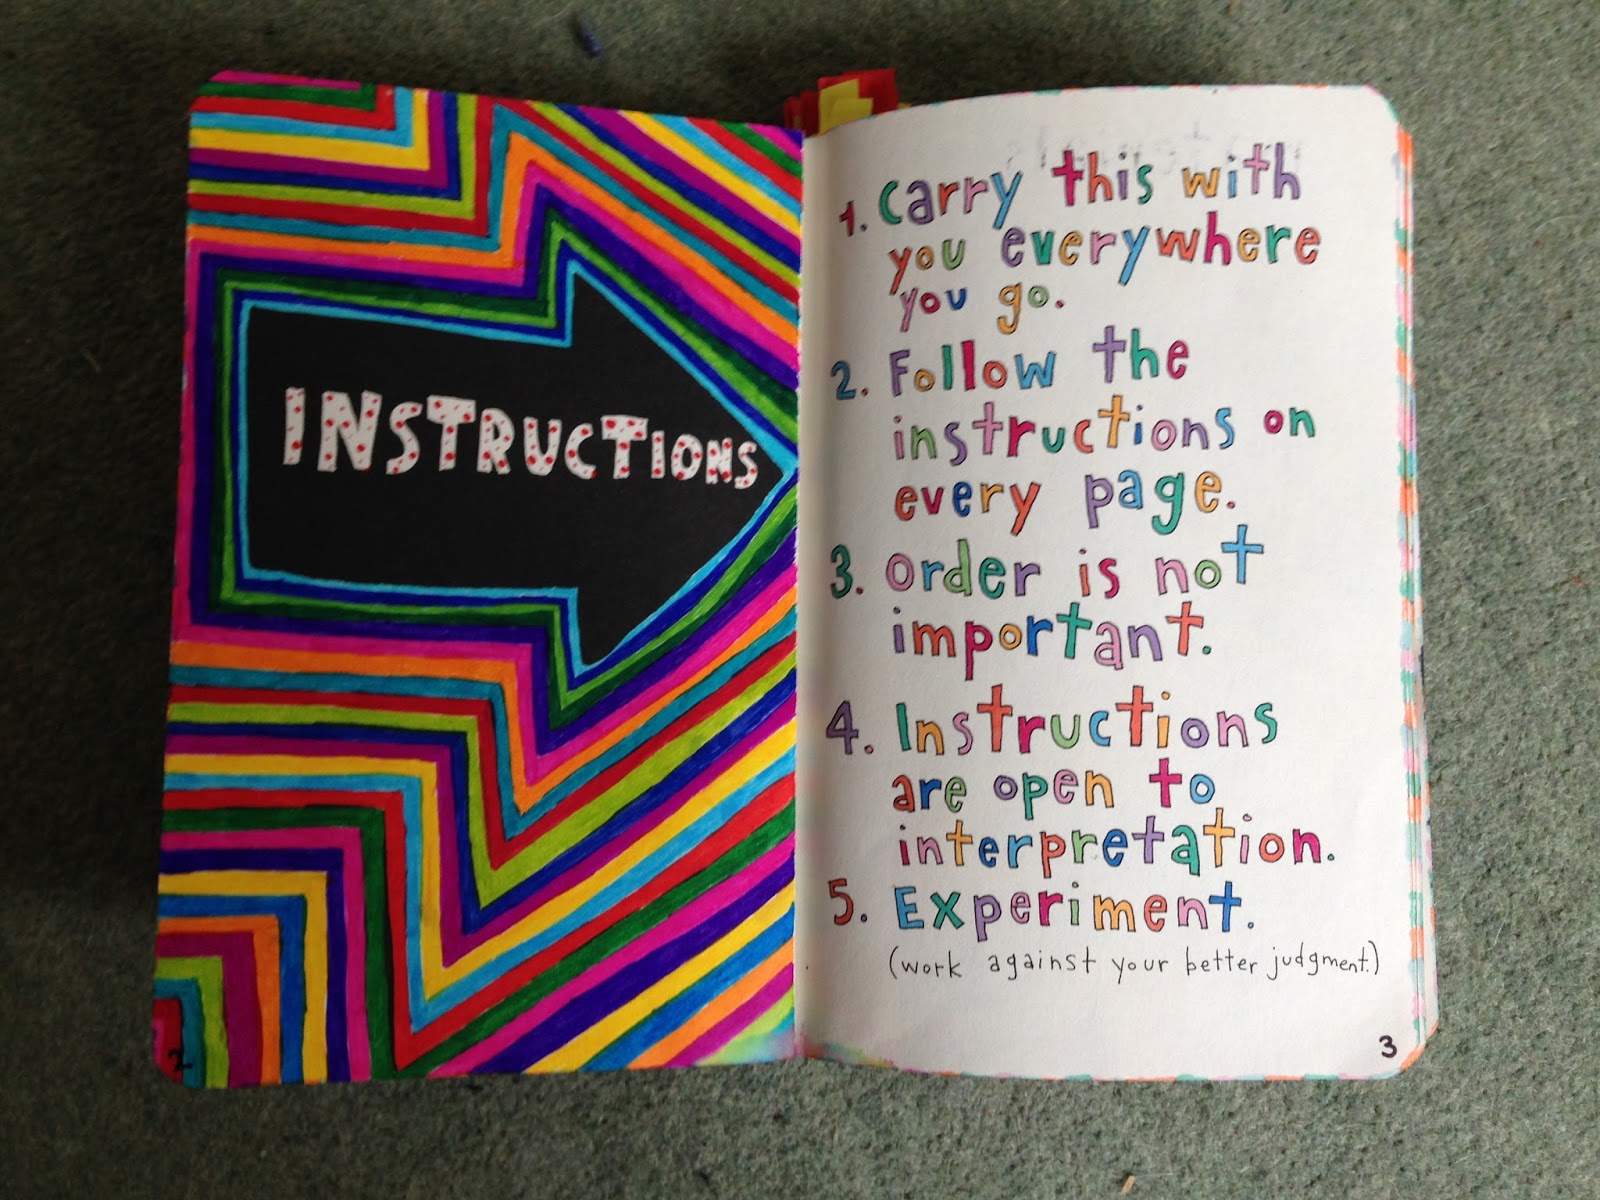 INSTRUCTIONS
2
1. Carry this with
you everywhere
you go.
2. Follow the
instructions on
every page.
3. Order is not
important.
4. Instructions
are open to
interpretation.
5. Experiment.
(work against your better judgment.)
3